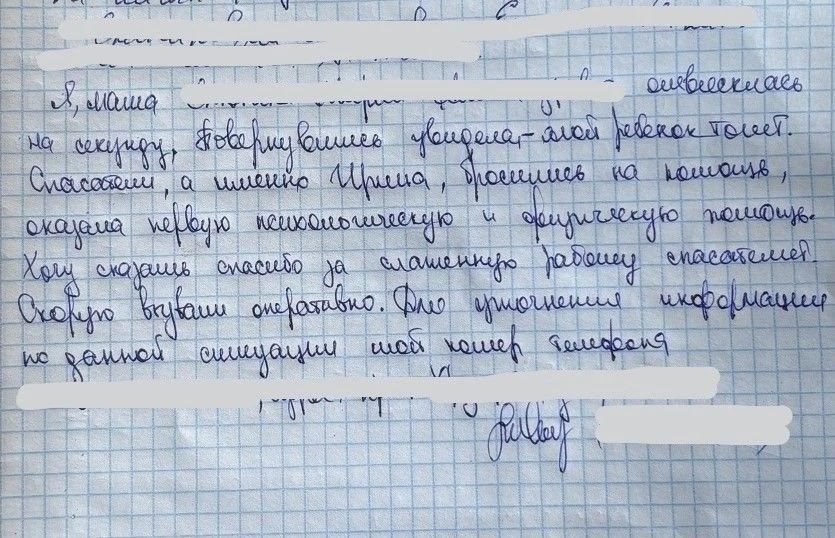 Я, мама отвлеклась
на секунду, повернувшись увидела, - мой ребенок тонет.
Спасатели, а именно Ирина, бросились на помощь,
оказала первую психологическую и физическую помощь.
Хочу сказать спасибо за слаженную работу спасателей.
Скорую вызвали оперативно. Для уточнения информации
по данной ситуации мой номер телефона